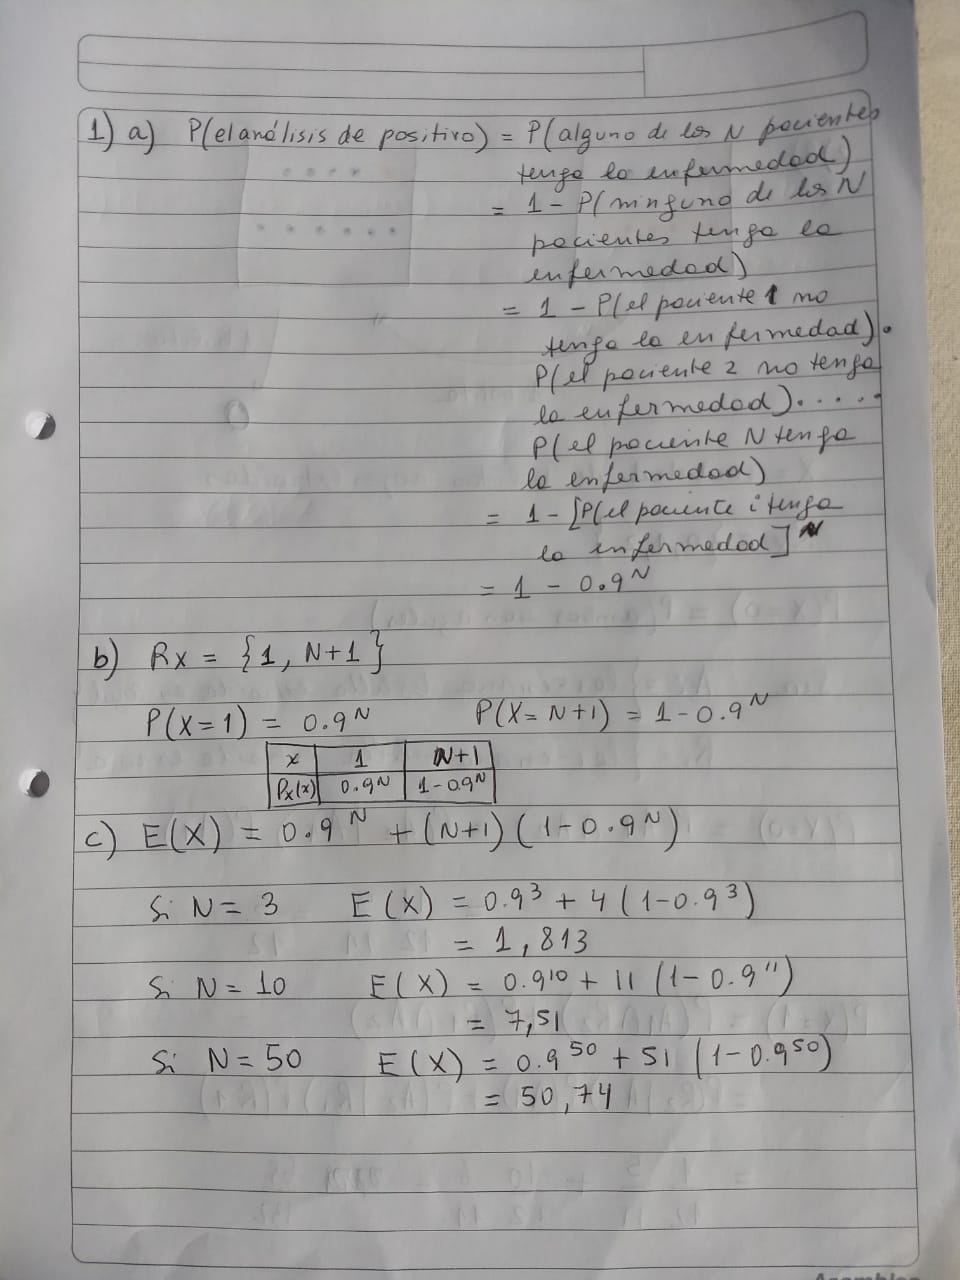 1) a) P(el análisis de positivo) = P(alguno de los N pacientes
tenga la enfermedad)
= 1 - P(ninguno de los N
pacientes tenga la
enfermedad)
= 1 - P(el paciente 1 no
tenga la enfermedad).
P(el paciente 2 no tenga
la enfermedad).....
P(el paciente N tenga
la enfermedad)
= 1 - [P(el paciente i tenga
la enfermedad]^N
= 1 - 0.9^N
b) Rx = {1, N+1}
P(X=1) = 0.9^N P(X=N+1) = 1-0.9^N
x 1 N+1
Px(x) 0.9^N 1-0.9^N
c) E(X) = 0.9^N + (N+1)(1-0.9^N)
Si N=3 E(X) = 0.9^3 + 4(1-0.9^3)
= 1,813
Si N=10 E(X) = 0.9^10 + 11(1-0.9^11)
= 7,51
Si N=50 E(X) = 0.9^50 + 51(1-0.9^50)
= 50,74